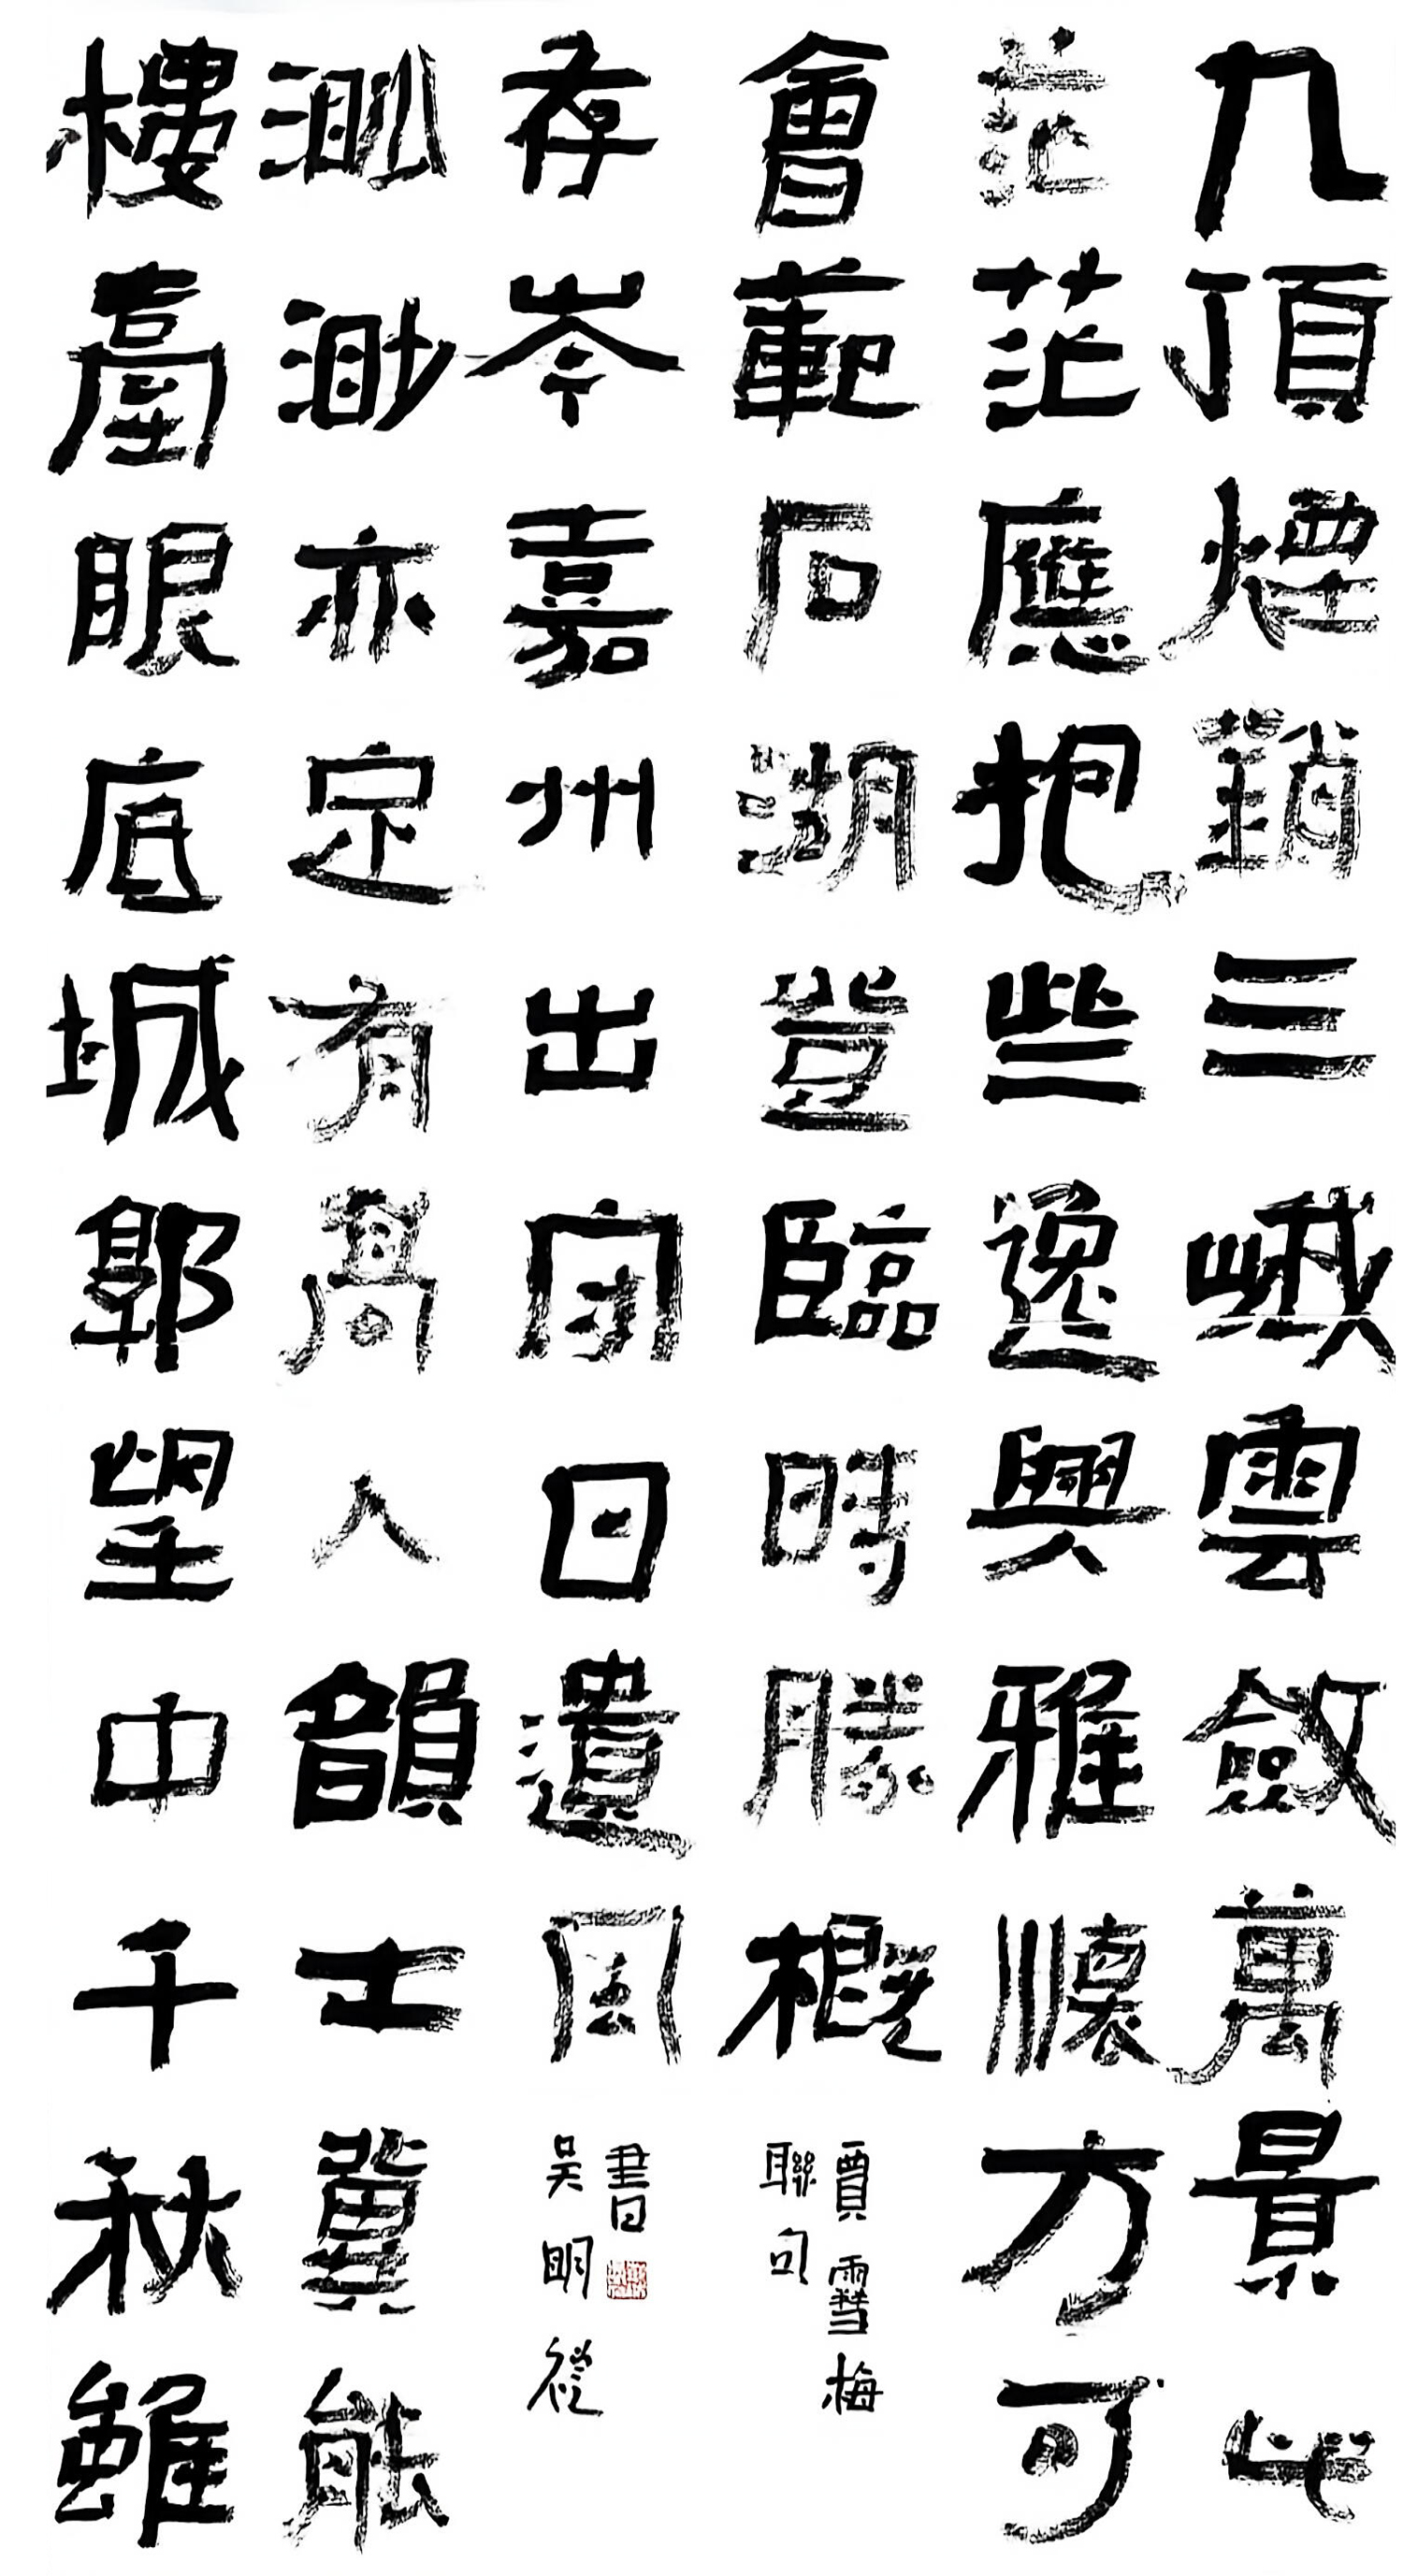 九頂煙鎖三峨雲斂萬景此
茫茫應抱些逸興雅懷方可
會範石湖登臨時勝概
賈雪梅
聯句
樓臺眼底城郭望中千秋雖
渺渺亦定有高人韻士冀能
存岑嘉州出守日遺風
吳明從
書